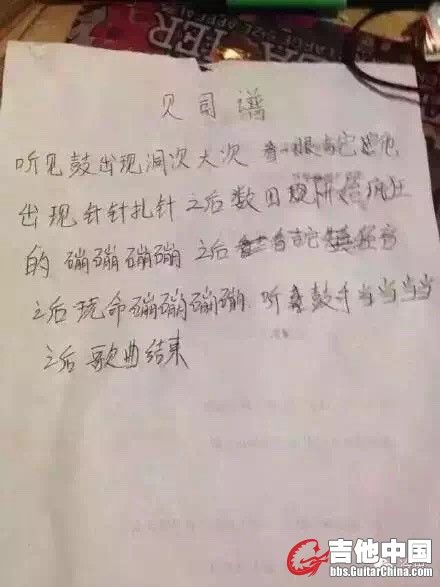 TER
贝司谱
听见鼓出现洞次大次 看一眼吉它 他
出现针针扎针 之后数四 开始疯狂
的 蹦蹦蹦蹦 之后
之后玩命蹦蹦蹦蹦 听鼓手当当当当
之后 歌曲结束
吉他中国
bbs.GuitarChina.com